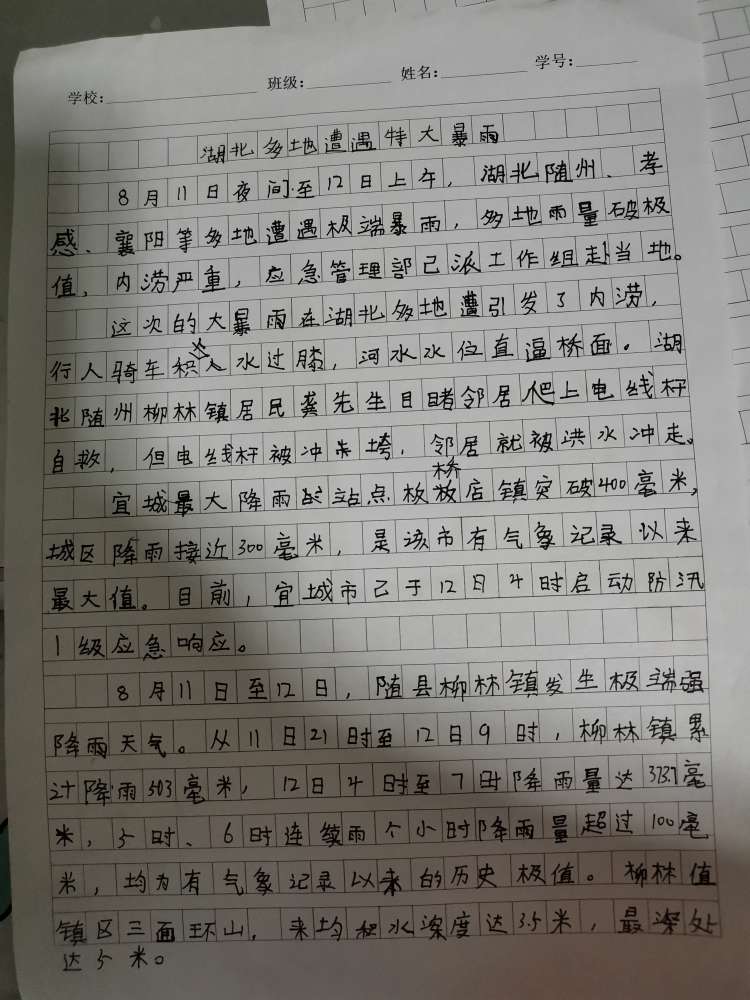 学校: 班级: 姓名: 学号:
湖北多地遭遇特大暴雨
8月11日夜间至12日上午，湖北随州、孝
感、襄阳等多地遭遇极端暴雨，多地雨量破极
值，内涝严重，应急管理部已派工作组赴当地。
这次的大暴雨在湖北多地遭引发了内涝，
行人骑车积水过膝，河水水位直逼桥面。湖
北随州柳林镇居民龚先生目睹邻居爬上电线杆
自救，但电线杆被冲垮，邻居就被洪水冲走。
宜城最大降雨站点板桥店镇突破400毫米，
城区降雨接近300毫米，是该市有气象记录以来
最大值。目前，宜城市已于12日4时启动防汛
1级应急响应。
8月11日至12日，随县柳林镇发生极端强
降雨天气。从11日21时至12日9时，柳林镇累
计降雨503毫米，12日4时至7时降雨量达373.7毫
米，5时、6时连续雨个小时降雨量超过100毫
米，均为有气象记录以来的历史极值。柳林值
镇区三面环山，来均积水深度达3.5米，最深处
达5米。